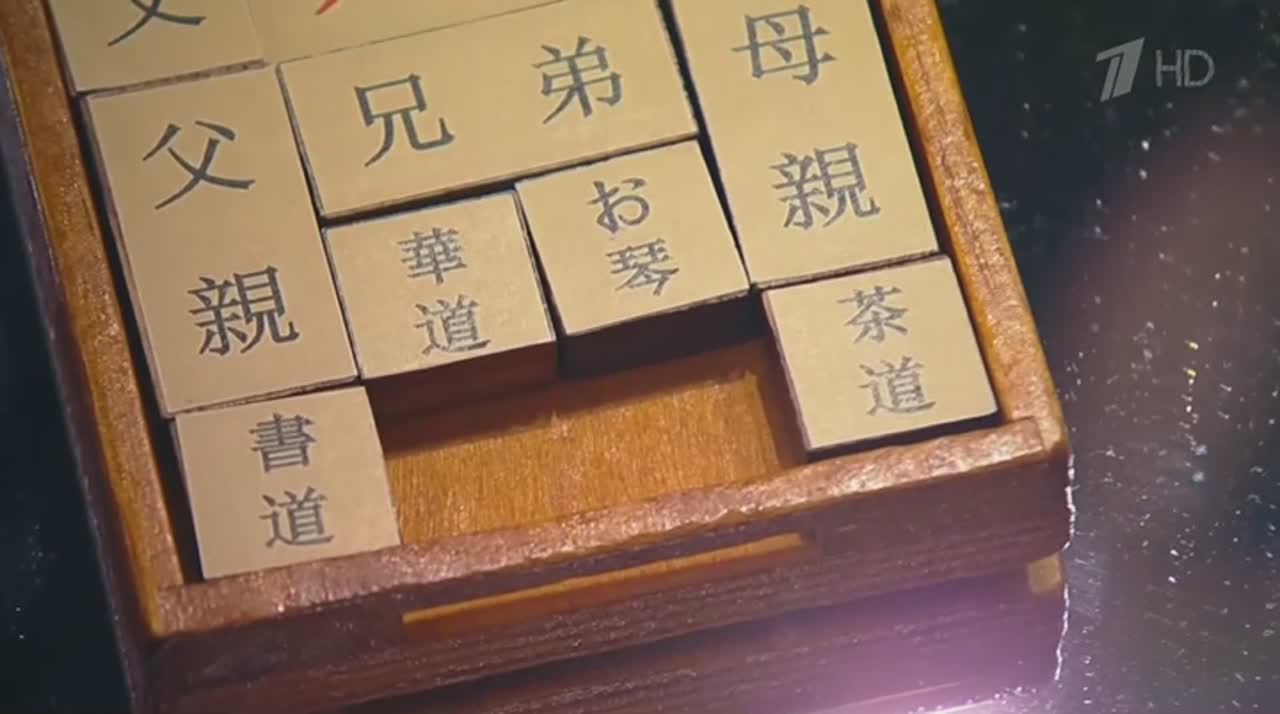 父
兄弟
母親
父親
華道
お琴
茶道
書道
1 HD